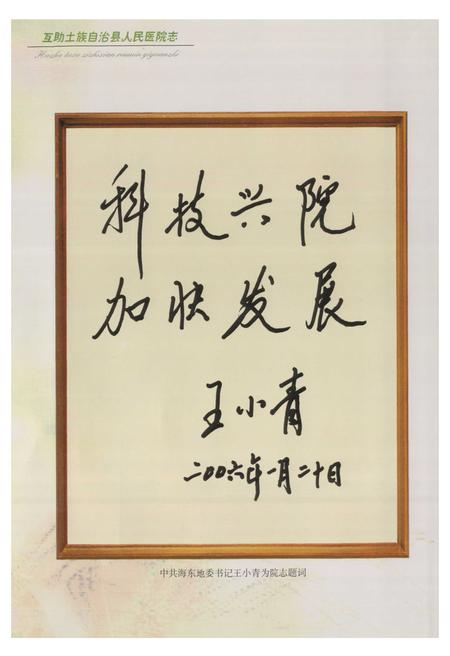 互助土族自治县人民医院志
Huzhu tuzu zizhixian renmin yiyuanzhi
科技兴院
加快发展
王小青
二00六年一月二十日
中共海东地委书记王小青为院志题词